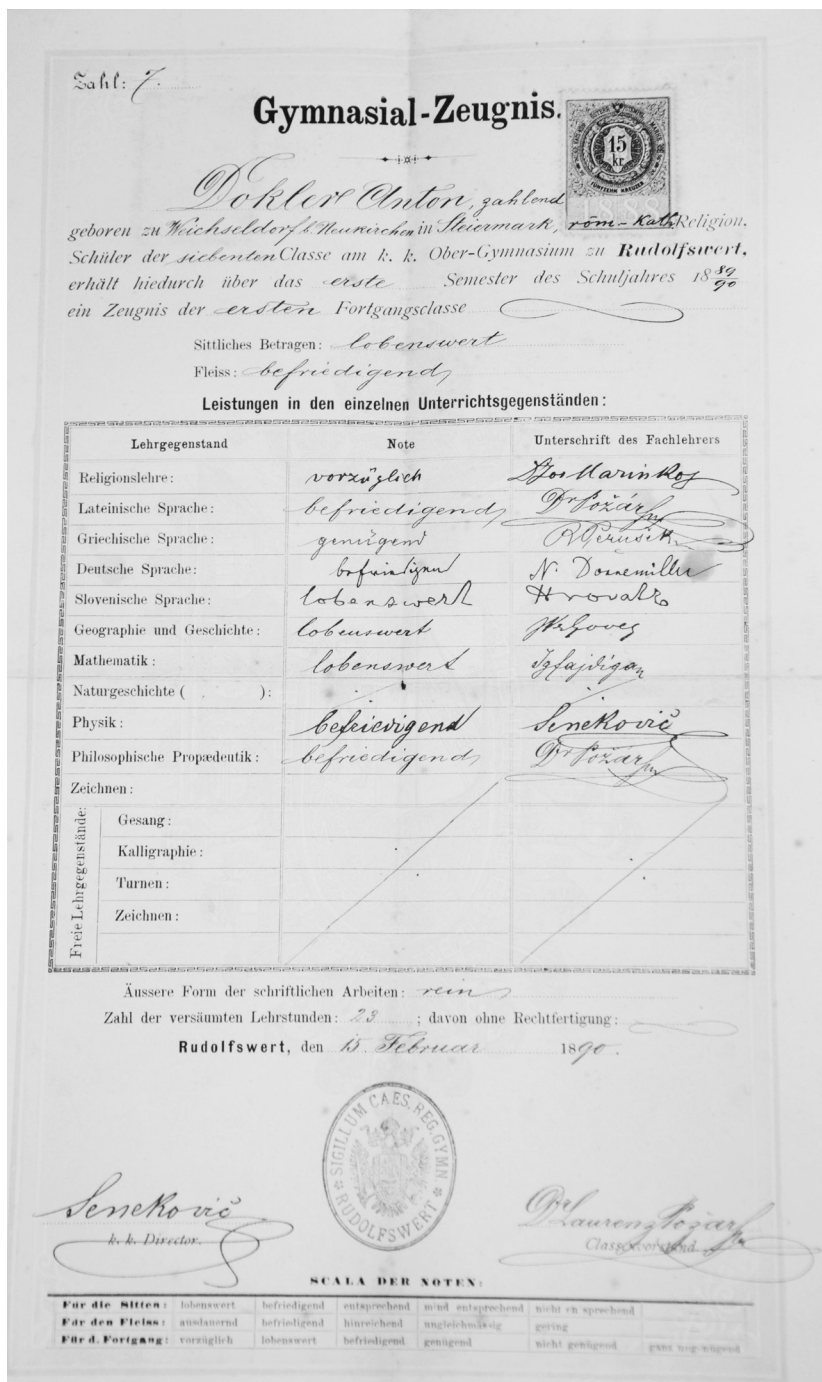 Zahl: 7.
Gymnasial-Zeugnis.
15
kr.
FÜNFZEHN KREUZER
Dokler Anton, zahlend
geboren zu Weichseldorf b. Neukirchen in Steiermark, röm-kath. Religion,
Schüler der siebenten Classe am k. k. Ober-Gymnasium zu Rudolfswert,
erhält hiedurch über das erste Semester des Schuljahres 18 89/90
ein Zeugnis der ersten Fortgangsclasse
Sittliches Betragen: lobenswert
Fleiss: befriedigend
Leistungen in den einzelnen Unterrichtsgegenständen:
Lehrgegenstand Note Unterschrift des Fachlehrers
Religionslehre: vorzüglich Jos Marinko
Lateinische Sprache: befriedigend Dr Požar
Griechische Sprache: genügend R Perušek
Deutsche Sprache: befriedigend N. Donnemiller
Slovenische Sprache: lobenswert Hrovat
Geographie und Geschichte: lobenswert
Mathematik: lobenswert Ig Fajdiga
Naturgeschichte ( ):
Physik: befriedigend Senekovič
Philosophische Propædeutik: befriedigend Dr Požar
Zeichnen:
Freie Lehrgegenstände:
Gesang:
Kalligraphie:
Turnen:
Zeichnen:
Äussere Form der schriftlichen Arbeiten: rein
Zahl der versäumten Lehrstunden: 23 ; davon ohne Rechtfertigung:
Rudolfswert, den 15. Februar 1890.
SIGILLUM CAES. REG. GYMN
RUDOLFSWERT
Senekovič
k. k. Director.
Dr Laurenz Požar
Classenvorstand
SCALA DER NOTEN:
Für die Sitten: lobenswert befriedigend entsprechend mind entsprechend nicht entsprechend
Für den Fleiss: ausdauernd befriedigend hinreichend ungleichmässig gering
Für d. Fortgang: vorzüglich lobenswert befriedigend genügend nicht genügend ganz ungenügend